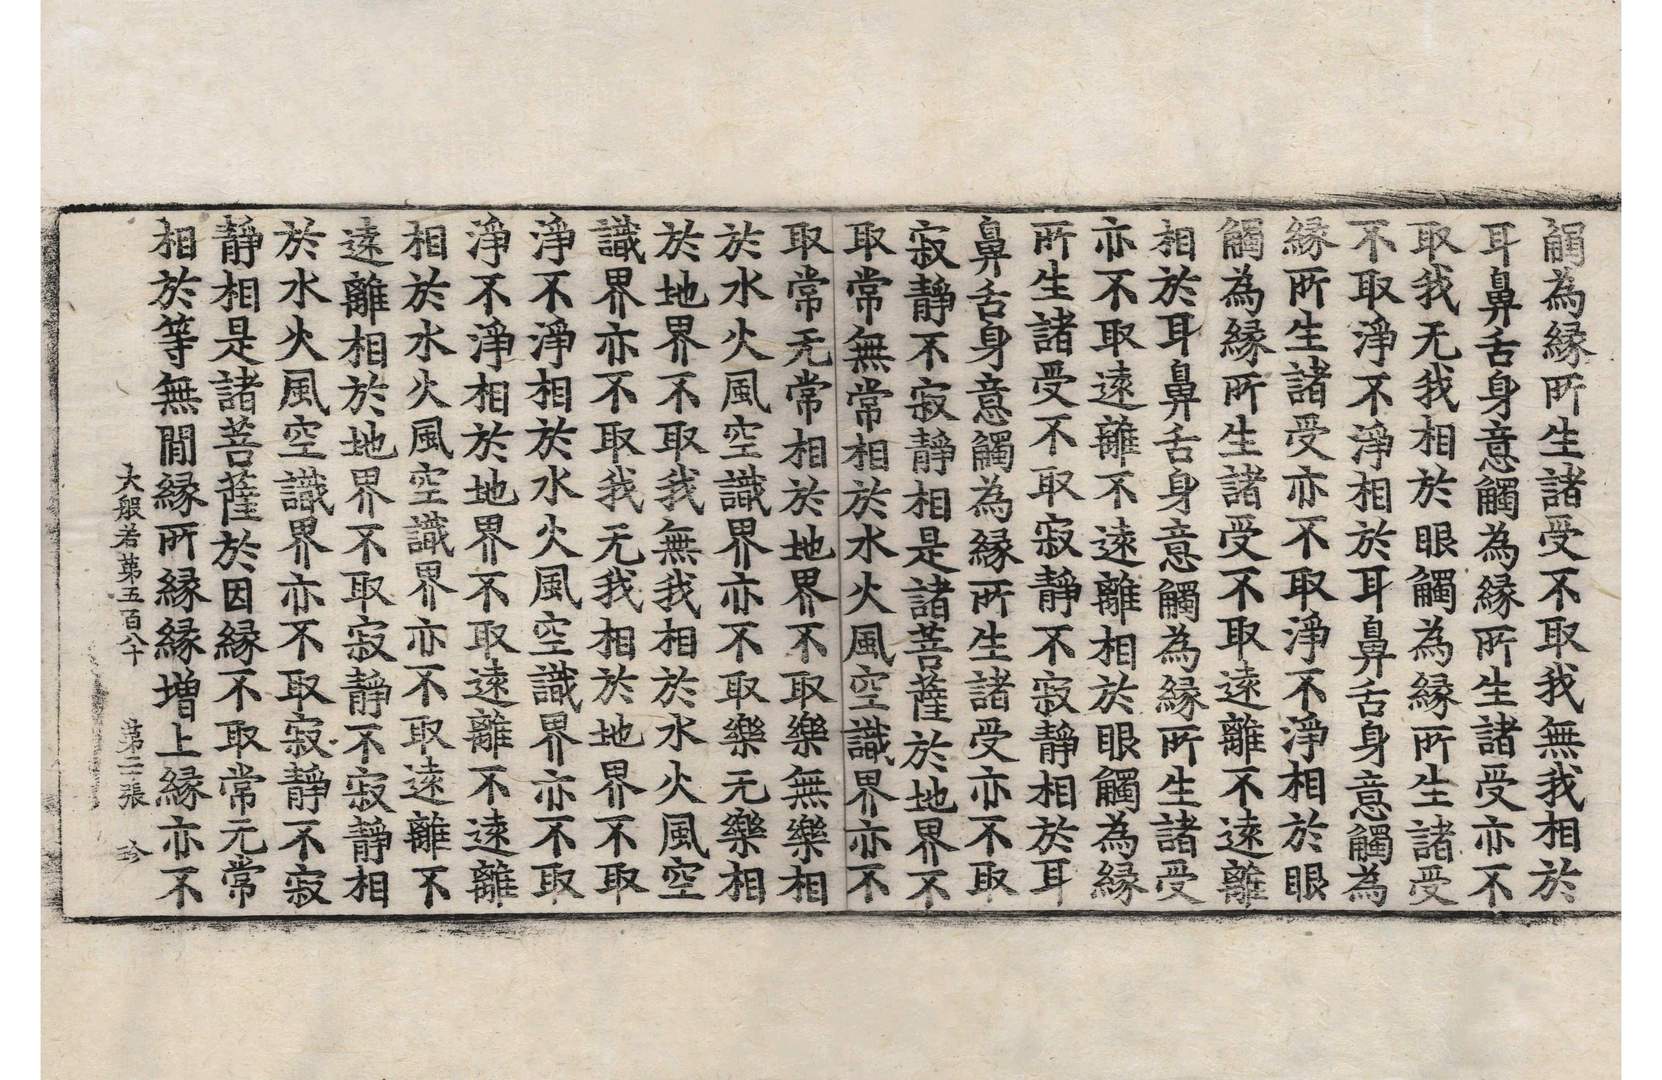 觸為縁所生諸受不取我無我相於
耳鼻舌身意觸為縁所生諸受亦不
取我无我相於眼觸為縁所生諸受
不取淨不淨相於耳鼻舌身意觸為
縁所生諸受亦不取淨不淨相於眼
觸為縁所生諸受不取遠離不遠離
相於耳鼻舌身意觸為縁所生諸受
亦不取遠離不遠離相於眼觸為縁
所生諸受不取寂靜不寂靜相於耳
鼻舌身意觸為縁所生諸受亦不取
寂靜不寂靜相是諸菩薩於地界不
取常無常相於水火風空識界亦不
取常无常相於地界不取樂無樂相
於水火風空識界亦不取樂无樂相
於地界不取我無我相於水火風空
識界亦不取我无我相於地界不取
淨不淨相於水火風空識界亦不取
淨不淨相於地界不取遠離不遠離
相於水火風空識界亦不取遠離不
遠離相於地界不取寂靜不寂靜相
於水火風空識界亦不取寂靜不寂
靜相是諸菩薩於因縁不取常无常
相於等無閒縁所縁縁增上縁亦不
大般若第五百八十 第二張 珍